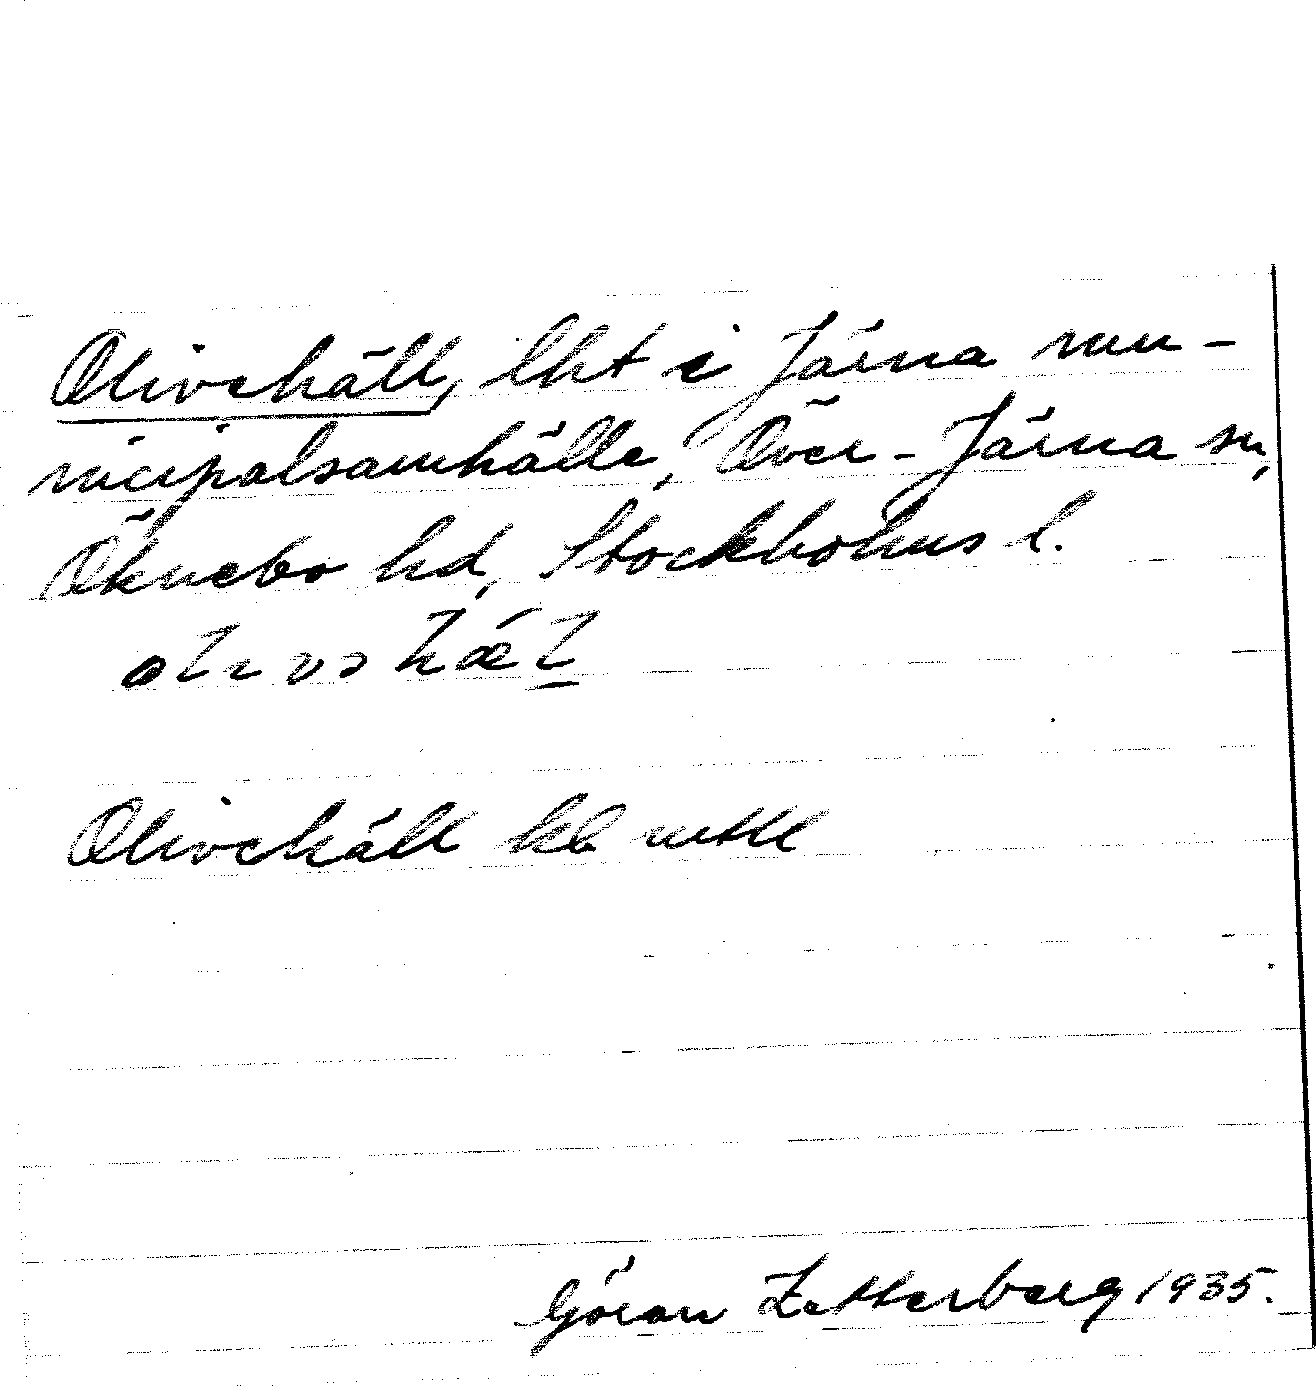 Olivehäll, lht i Järna mu-
nicipalsamhälle, Över-Järna sn,
Öknebo hd, Stockholms l.
Olivehäll kb mtl
Göran Zetterberg 1935.